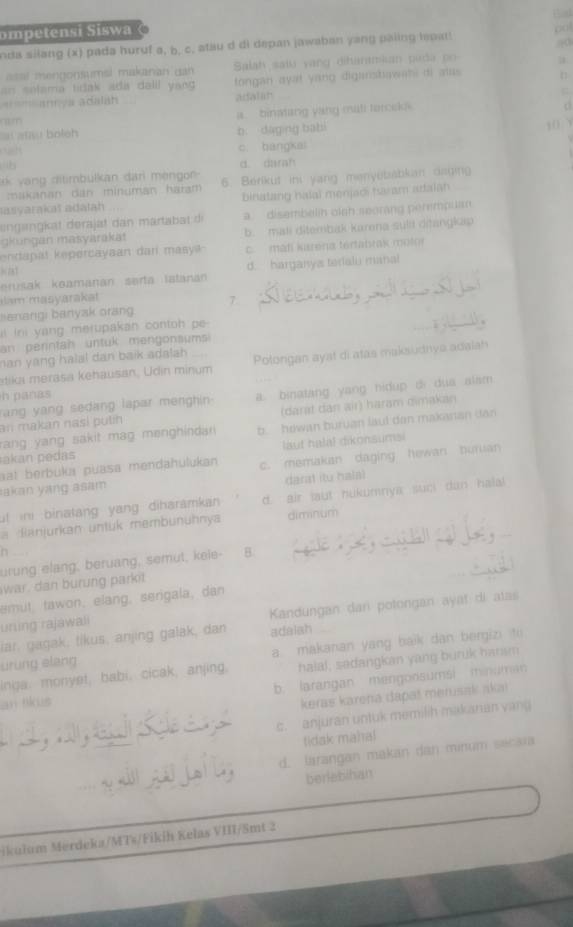 ompetensi Siswa
nda silang (x) pada huruf a, b, c, atau d di depan jawaban yang paling tepat!
asal mengonsumsi makanan dan
an selama tidak ada dalil yang
adalah ....
ram
atau boleh
ak yang ditimbulkan dari mengon-
makanan dan minuman haram
asyarakat adalah ....
engangkat derajat dan martabat di
gkungan masyarakat
endapat kepercayaan dari masya-
kat
erusak keamanan serta tatanan
lam masyarakat
enangi banyak orang
i ini yang merupakan contoh pe-
an perintah untuk mengonsumsi
nan yang halal dan baik adalah ....
etika merasa kehausan, Udin minum
h panas
rang yang sedang lapar menghin-
ari makan nasi putih
rang yang sakit mag menghindari
akan pedas
aat berbuka puasa mendahulukan
akan yang asam
ut ini binatang yang diharamkan
a dianjurkan untuk membunuhnya
h ....
urung elang, beruang, semut, kele-
war, dan burung parkit
emut, tawon, elang, serigala, dan
urung rajawali
lar, gagak, tikus, anjing galak, dan
urung elang
inga, monyet, babi, cicak, anjing,
an tikus
حُرِّمَتْ عَلَيْكُمُ الْمَيْتَةُ وَالدَّمُ وَلَحْمُ
وَمَآ أُهِلَّ لِغَيْرِ اللهِ بِهِ ....
Salah satu yang diharamkan pada po-
tongan ayat yang digarisbawahi di atas
adalah ....
a. binatang yang mati tercekik
b. daging babi
c. bangkai
d. darah
6. Berikut ini yang menyebabkan daging
binatang halal menjadi haram adalah ....
a. disembelih oleh seorang perempuan
b. mati ditembak karena sulit ditangkap
c. mati karena tertabrak motor
d. harganya terlalu mahal
7. أُحِلَّ لَكُمْ صَيْدُ الْبَحْرِ وَطَعَامُهُ مَتَاعًا لَّكُمْ
وَلِلسَّيَّارَةِ ....
Potongan ayat di atas maksudnya adalah
....
a. binatang yang hidup di dua alam
(darat dan air) haram dimakan
b. hewan buruan laut dan makanan dari
laut halal dikonsumsi
c. memakan daging hewan buruan
darat itu halal
d. air laut hukumnya suci dan halal
diminum
8. ... وَيُحِلُّ لَهُمُ الطَّيِّبٰتِ وَيُحَرِّمُ عَلَيْهِمُ
الْخَبٰۤىِٕثَ ....
Kandungan dari potongan ayat di atas
adalah ....
a. makanan yang baik dan bergizi itu
halal, sedangkan yang buruk haram
b. larangan mengonsumsi minuman
keras karena dapat merusak akal
c. anjuran untuk memilih makanan yang
tidak mahal
d. larangan makan dan minum secara
berlebihan
10.
ikulum Merdeka/MTs/Fikih Kelas VIII/Smt 2